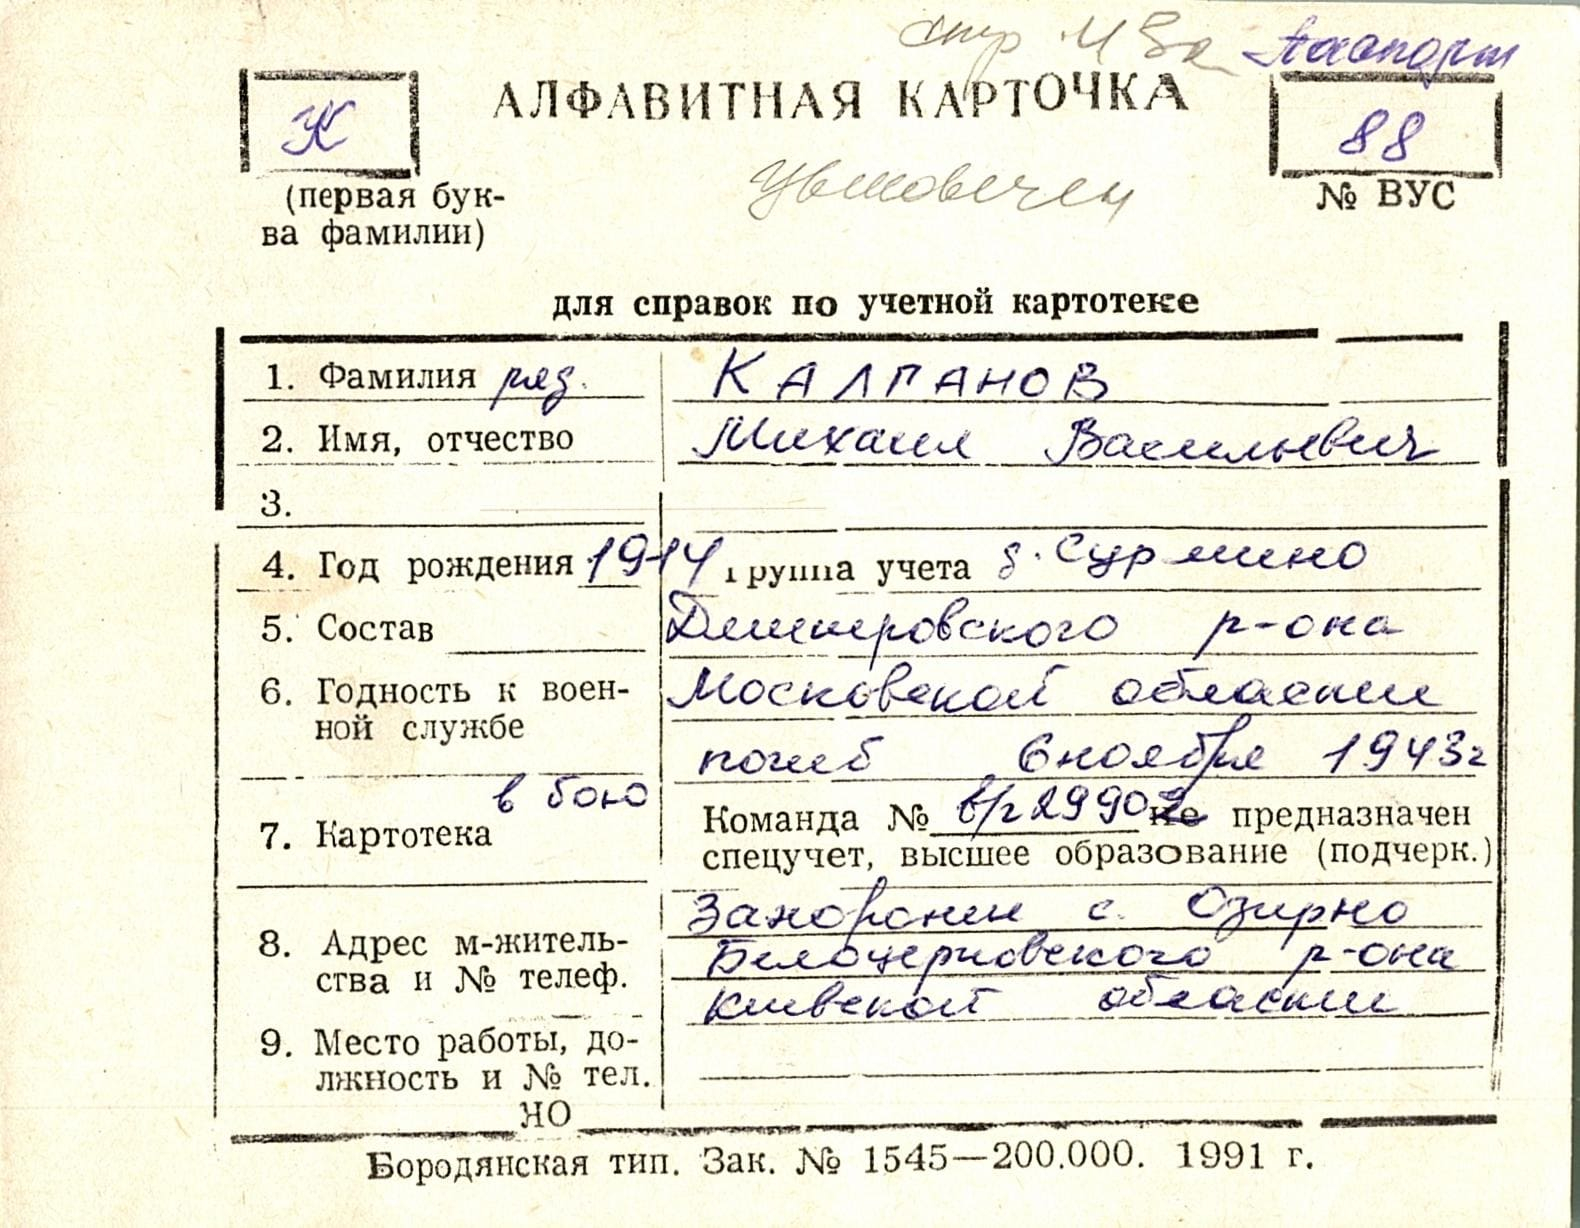 Паспорт
К АЛФАВИТНАЯ КАРТОЧКА 88
(первая бук-
ва фамилии)
№ ВУС
Увековечен
для справок по учетной картотеке
1. Фамилия ряд. КАЛГАНОВ
2. Имя, отчество Михаил Васильевич
3.
4. Год рождения 1914 группа учета д. Сурмино
5. Состав Дмитровского р-она
6. Годность к воен-
ной службе
Московской области
погиб 6 ноября 1943г
в бою
7. Картотека
Команда № в/г 29902 не предназначен
спецучет, высшее образование (подчерк.)
Захоронен с. Озирно
8. Адрес м-житель-
ства и № телеф.
Белоцерковского р-она
Киевской области
9. Место работы, до-
лжность и № тел.
НО
Бородянская тип. Зак. № 1545—200.000. 1991 г.